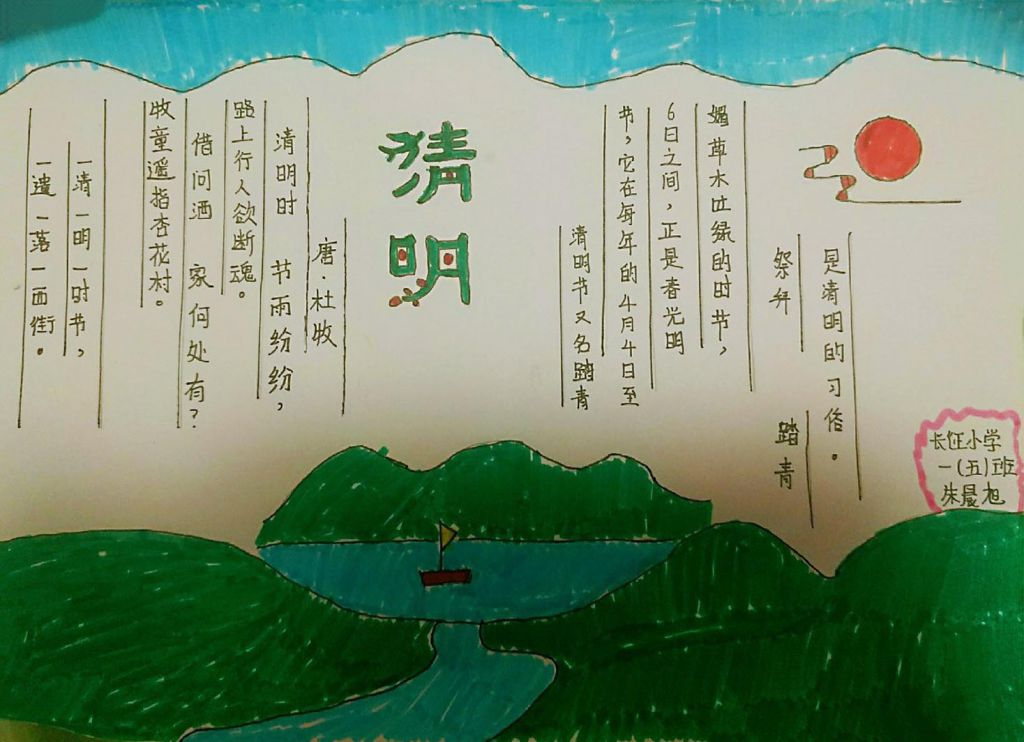 清明
唐·杜牧
清明时 节雨纷纷，
路上行人欲断魂。
借问洒 家何处有？
牧童遥指杏花村。
一清一明一时节，
一遣一落一面街。
清明节又名踏青
节，它在每年的4月4日至
6日之间，正是春光明
媚草木吐绿的时节，
祭拜 踏青
是清明的习俗。
小学
一(五)班
朱晨旭